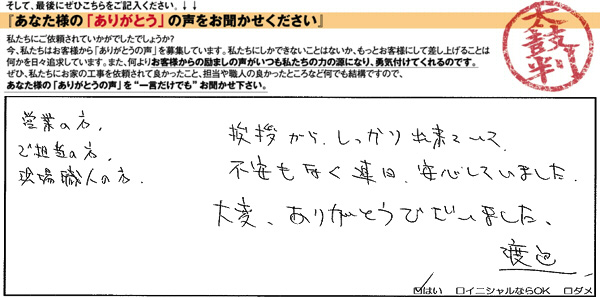 そして、最後にぜひこちらをご記入ください。↓↓
『あなた様の「ありがとう」の声をお聞かせください』
私たちにご依頼されていかがでしたでしょうか?
今、私たちはお客様から「ありがとうの声」を募集しています。私たちにしかできないことはないか、もっとお客様にして差し上げることは
何かを日々追求しています。また、何よりお客様からの励ましの声がいつも私たちの力の源になり、勇気付けてくれるのです。
ぜひ、私たちにお家の工事を依頼されて良かったこと、担当や職人の良かったところなど何でも結構ですので、
あなた様の「ありがとうの声」を“一言だけでも”お聞かせ下さい。
太鼓判
営業の方、
ご担当の方、
現場職人の方、
挨拶から、しっかり出来ていて、
不安もなく連日、安心していました。
大変、ありがとうございました。
渡辺
☑はい □イニシャルならOK □ダメ